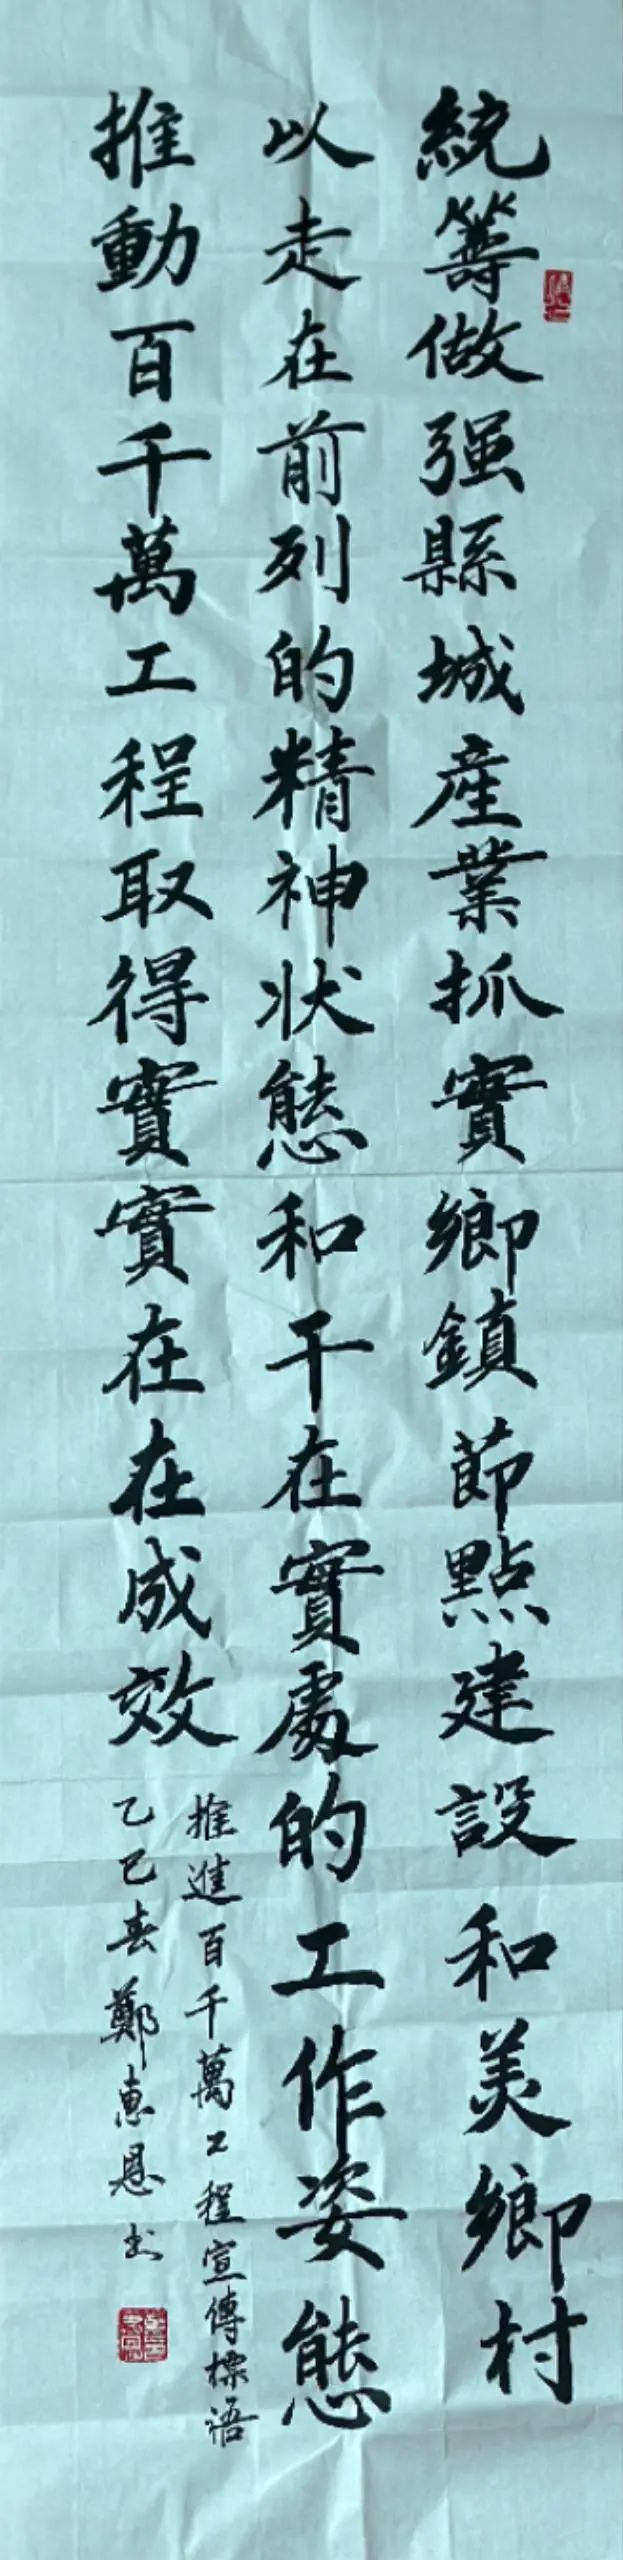 統籌做强縣城産業抓實鄉鎮節點建設和美鄉村
以走在前列的精神状態和干在實處的工作姿態
推動百千萬工程取得實實在在成效
推進百千萬工程宣傳標語
乙巳春鄭惠恩书